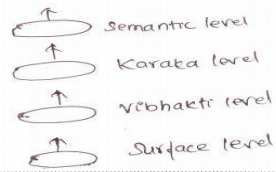 Semantic level
Karaka level
Vibhakti level
Surface level